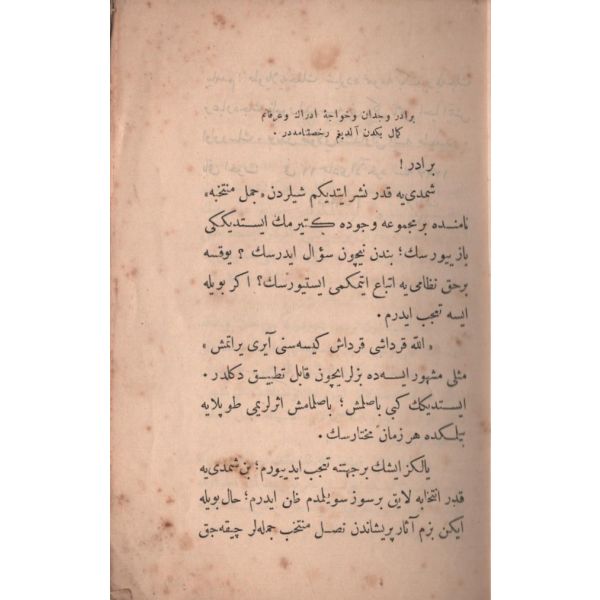 برادر وجدان وخواجهٔ ادراك وعرفانم
كمال بكدن آلديغم رخصتنامه‌در .
برادر !
شمدی‌یه قدر نشر ایتدیكم شیلردن «جمل منتخبه»
نامنده بر مجموعه وجوده كتیرمك ایستدیككی
یازییورسك؛ بندن نیچون سؤال ایدرسك ؟ یوقسه
برحق نظامی‌یه اتباع ایتمكمی ایستیورسك؟ اكر بویله
ایسه تعجب ایدرم .
« اللّه قرداشی قرداش كیسه‌سنی آیری یراتمش »
مثلی مشهور ایسه‌ده بزلر ایچون قابل تطبیق دكلدر .
ایستدیكك كبی باصلمش ؛ باصلمامش اثرلریمی طوپلایه
بیلمكده هر زمان مختارسك .
یالكز ایشك بر جهتنه تعجب ایدییورم؛ بن شمدی‌یه
قدر انتخابه لایق برسوز سویلمدم ظن ایدرم؛ حال بویله
ایكن بزم آثار پریشاندن نصل منتخب جمله‌لر چیقه‌جق